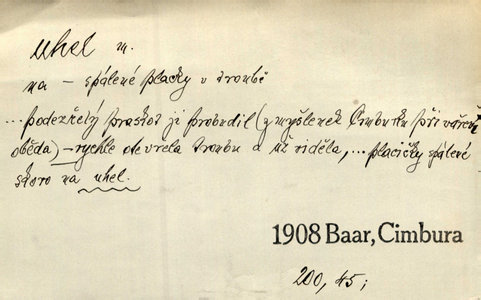 uhel m.
na – spálené placky v troubě
...podezřelý praskot ji probudil (z myšlenek Cimburku při vaření
oběda) – rychle otevřela troubu a už viděla,... placičky spálené
skoro na uhel.
1908 Baar, Cimbura
200, 45;